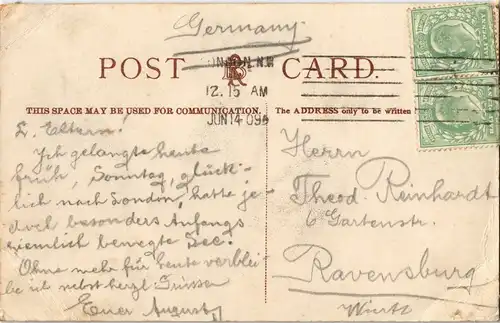 Germany.
POST CARD.
LONDON.N.W
12.15 AM
JUN 14 09
THIS SPACE MAY BE USED FOR COMMUNICATION.
The ADDRESS only to be written
L. Eltern!
Ich gelangte heute
früh, Sonntag, glück-
lich nach London, hatte je-
doch besonders Anfangs
ziemlich bewegte See.
Ohne mehr für heute verblei-
be ich nebst herzl Grüssen
Euer August
Herrn
Theod. Reinhardt
6 Gartenstr.
Ravensburg